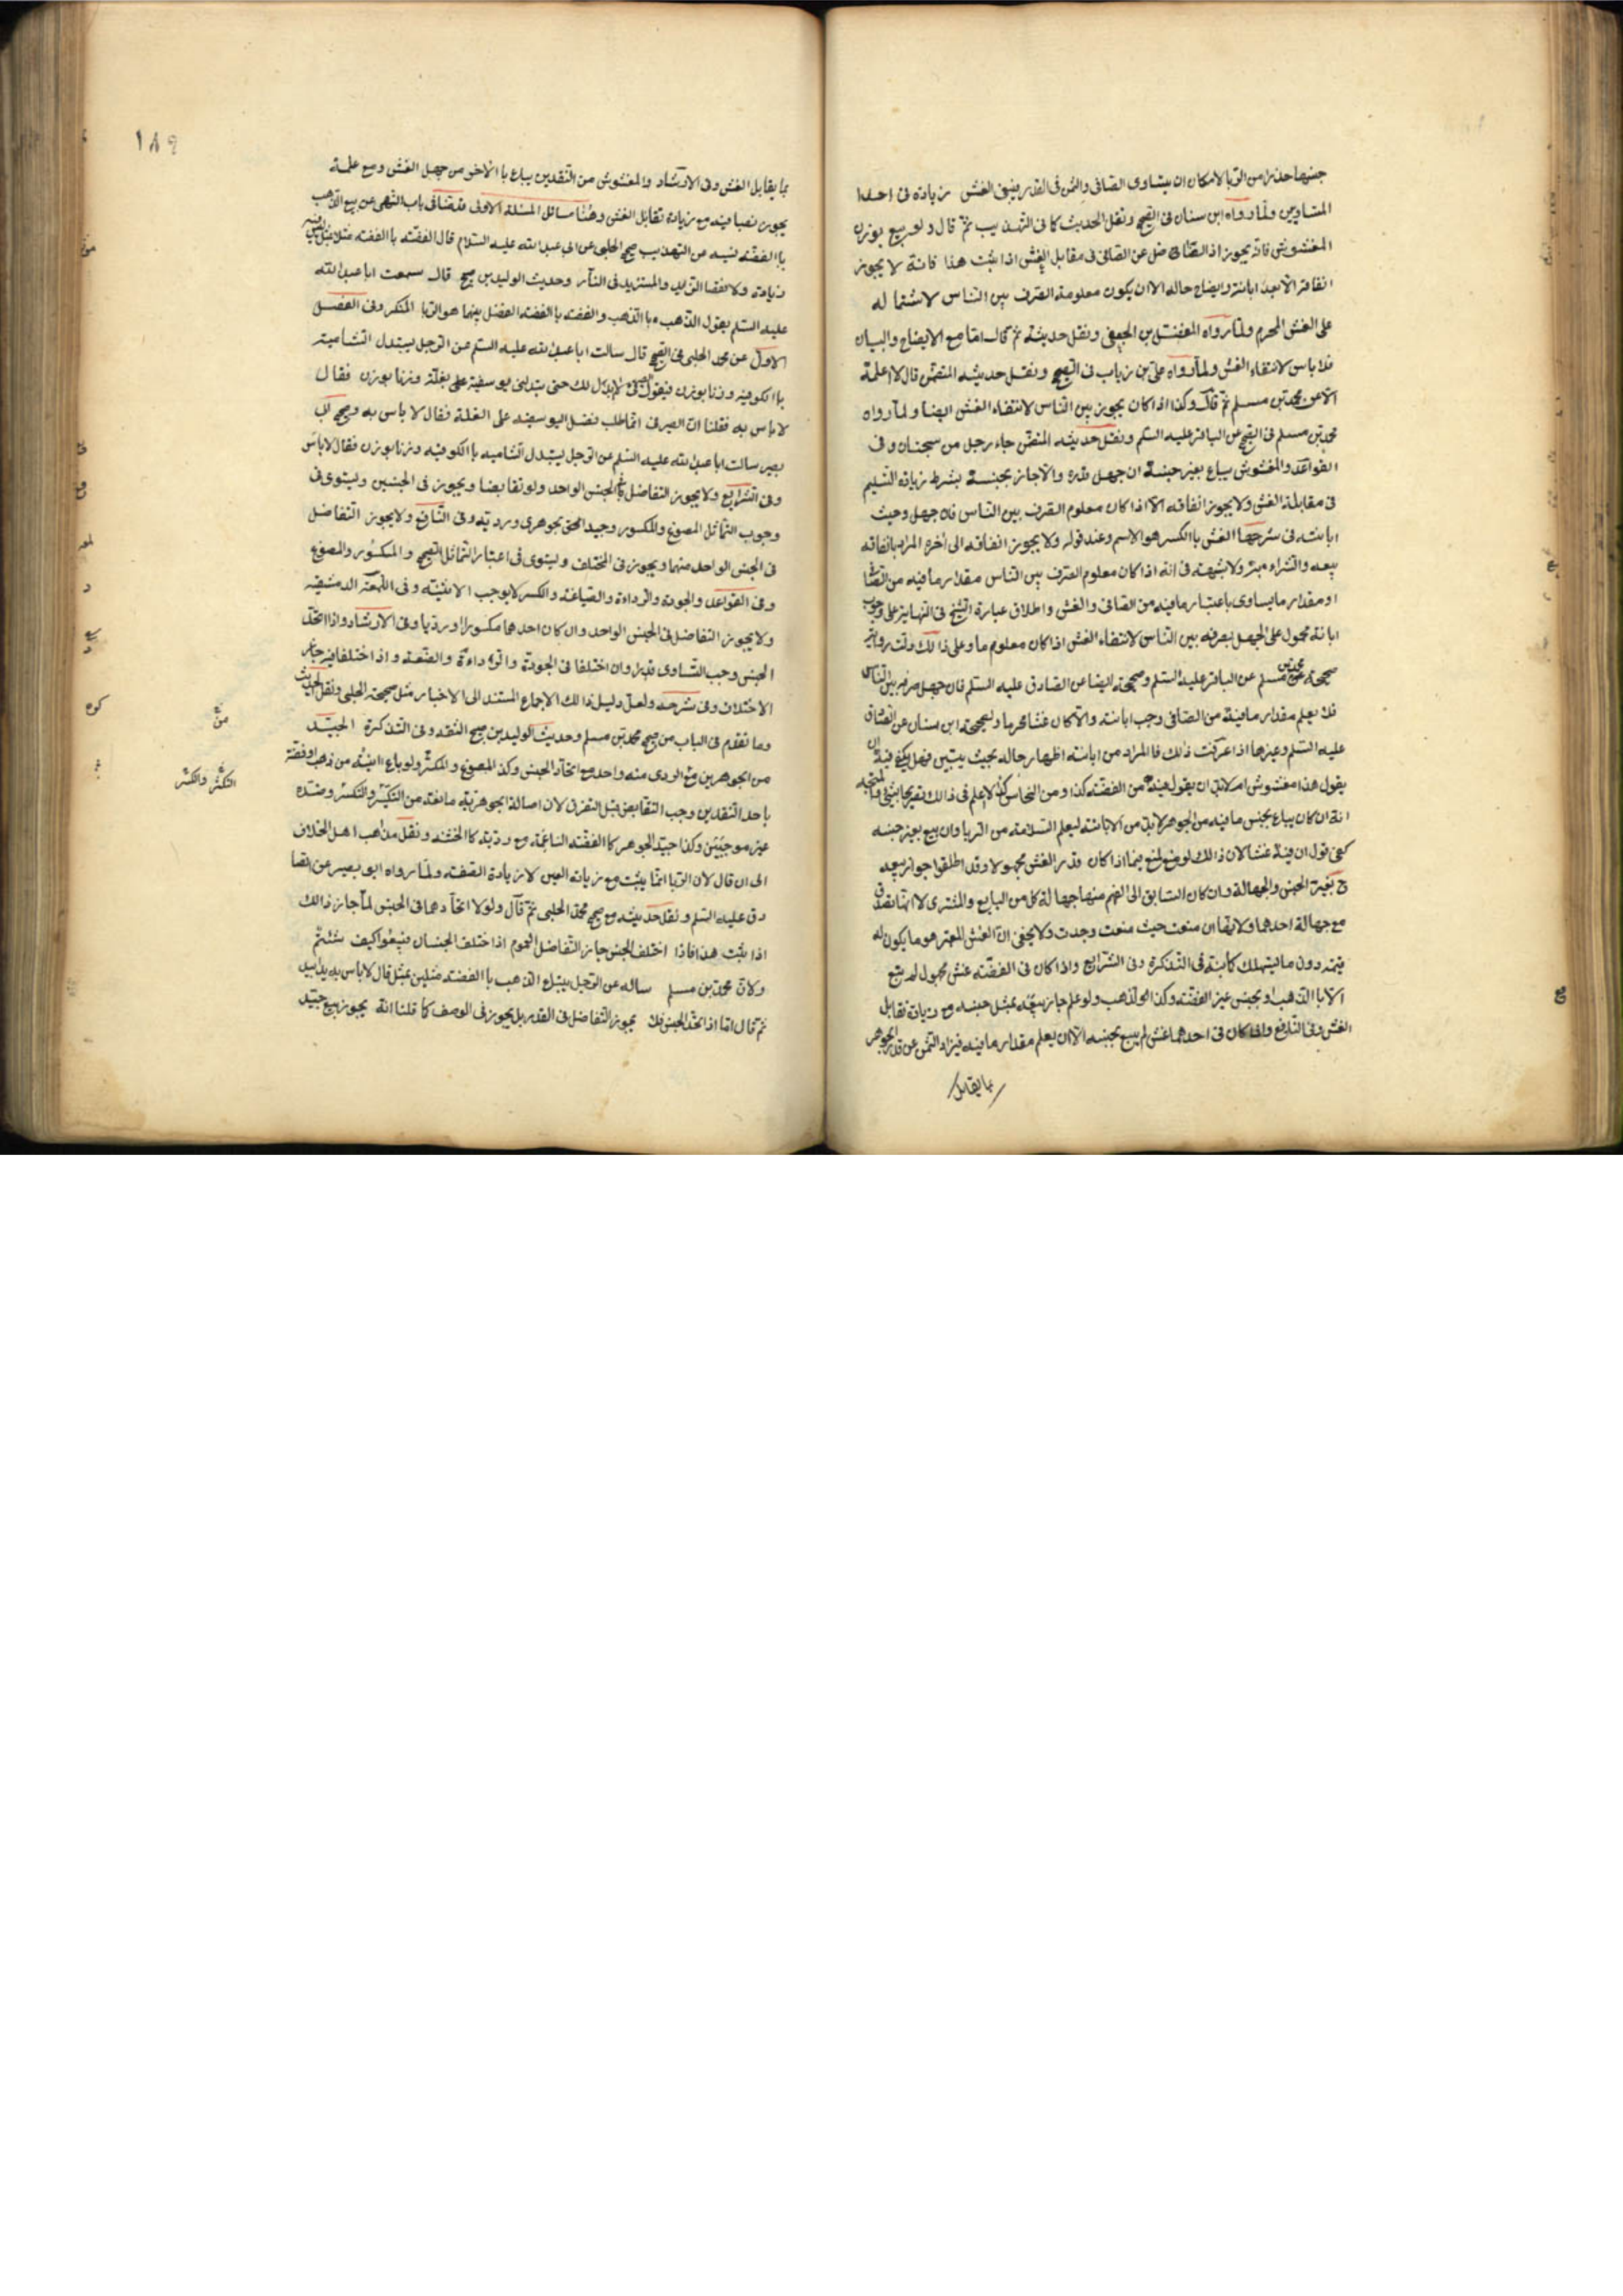 جنبها حذرا من الربا لامكان ان يتساوى الصافى والثمن فى القدر فيبقى الغش زيادة فى احد
المتساويين ولما رواه ابن سنان فى الصحيح ونقل الحديث كما فى التهذيب ثم قال ولو بيع بوزن
المغشوش فانه يجوز اذ الفاضل من الصافى فى مقابل الغش اذا ثبت هذا فانه لا يجوز
انفاقه الا بعد ابانته وايضاح حاله الا ان يكون معلومة الصرف بين الناس لاشتماله
على الغش المحرم ولما رواه المفضل بن الجعفى ونقل حديثه ثم قال امّا مع الايضاح والبيان
فلا باس لانتفاء الغش ولما رواه على بن رئاب فى الصحيح ونقل حديثه المتضمن قال لا اعلمه
الا عن محمد بن مسلم ثم قال وكذا اذا كان يجوز بين الناس لانتفاء الغش ايضا ولما رواه
محمد بن مسلم فى الصحيح عن الباقر عليه السلم ونقل حديثه المتضمن جاء رجل من سجستان وفى
القواعد والمغشوش يباع بغير جنسه ان جهل قدره والا جاز بجنسه بشرط زيادة السليم
فى مقابلة الغش ولا يجوز انفاقه الا اذا كان معلوم الصرف بين الناس فان جهل وجبت
ابانته فى شرحها الغش باالكسر هو الاسم وعند قوله ولا يجوز انفاقه الى اخره المراد بانفاقه
بيعه والشراء به ولا شبهة فى انه اذا كان معلوم الصرف بين الناس مقدار ما فيه من
او مقدار ما يساوى باعتبار ما فيه من الصافى والغش واطلاق عبارة الشيخ فى النهاية على وجوب
ابانة محمول على الجهل بصرفه بين الناس لانتفاء الغش اذا كان معلوم ما وعلى ذا لك دلت رواية
صحيحة محمد بن مسلم عن الباقر عليه السلم وصحيحة ايضا عن الصادق عليه السلم فان جهل صرفه بين الناس
فلا يعلم مقدار ما فيه من الصافى وجب ابانته والا كان غشا محرما وصحيحة ابن سنان عن الصادق
عليه السلم وغيرها اذا عرفت ذلك فالمراد من ابانته اظهار حاله بحيث يتبين فهل يكفى فيه ان
يقول هذا مغشوش ام لا بد ان يقول فيه من الفضة كذا ومن النحاس كذا لا اعلم فى ذا لك تصريحا بشئ والمتجه
انه ان كان يباع بجنس ما فيه من الجوهر لا بد من الابانة ليعلم السلامة من الربا وان بيع بغير جنسه
كفى قول ان فيه غشا لان ذا لك لو منع لمنع فيما اذا كان قدر الغش مجهولا وقد اطلقوا جواز بيعه
ح بغير الجنس والجهالة وان كان السابق الى الفهم منها جهالة كل من البايع والمشترى لا انها تصدق
مع جهالة احدهما ولا يقال ان منعت حيث منعت وجدت ولا يخفى ان الغش المعتبر هو ما يكون له
قيمة دون ما يستهلك كما بينه فى التذكرة وفى الشرايع واذا كان فى الفضة غش مجهول لم يبع
الا باا الذهب او بجنس غير الفضة وكذا الذهب ولو علم جاز بيعه بمثل جنسه مع زيادة تقابل
الغش وفى النافع واذا كان فى احدهما غش لم يبع بجنسه الا ان يعلم مقدار ما فيه فيزاد الثمن عن قدر الجوهر
بما يقابل
١٨٩
بما يقابل الغش وفى الارشاد والمغشوش من النقدين يباع باالاخر من جهل الغش ومع علمه
يجوز بصافيه مع زيادة تقابل الغش وهنا مسائل المسئلة الاولى قد مضى فى باب النهى عن بيع الذهب
باا الفضة نسيه من التهذيب صحيح الحلبى عن ابى عبد الله عليه السلام قال الفضة باا الفضة مثلا بمثل ليس فيه
زيادة ولا نقصا الزايد والمستزيد فى النار وحديث الوليد بن صبيح قال سمعت ابا عبد الله
عليه السلم يقول الذهب باا الذهب والفضة باا الفضة الفضل بينهما هو الربا المنكر وفى الفصل
الاول عن محمد الحلبى فى الصحيح قال سالت ابا عبد الله عليه السلم عن الرجل يستبدل الشامية
باا الكوفية وزنا بوزن فيقول الصيرفى لا ابدل لك حتى تبدلنى يوسفية على بغلة وزنا بوزن فقال
لا باس به فقلنا ان الصيرفى انما طلب فضل اليوسفية على الغلة فقال لا باس به وصحيح ابى
بصير سالت ابا عبد الله عليه السلم عن الرجل يستبدل الشاميه باا الكوفيه وزنا بوزن فقال لا باس
وفى الشرايع ولا يجوز التفاضل فى الجنس الواحد ولو تقابضا ويجوز فى الجنسين ويستوى فى
وجوب التماثل المصوغ والمكسور وجيد الجوهر ورديه وفى النافع ولا يجوز التفاضل
فى الجنس الواحد منهما ويجوز فى المختلف ويستوى فى اعتبار التماثل الصحيح والمكسور والمصوغ
وفى القواعد والجودة والرداءة والصياغة والكسر لا يوجب الاثنينية وفى اللمعة الدمشقية
ولا يجوز التفاضل فى الجنس الواحد وان كان احدهما مكسورا او رديا وفى الارشاد واذا اتحد
الجنس وجب التساوى قدرا وان اختلفا فى الجودة والرداءة والصنعة واذا اختلفا فيه جاز
الاختلاف وفى شرحه ولعل دليل ذا لك الاجماع المستند الى الاخبار مثل صحيحة الحلبى ونقل الحديث
وما تقدم فى الباب من صحيح محمد بن مسلم وحديث الوليد بن صبيح الثقه وفى التذكرة الجيد
من الجوهرين مع الردى منه واحد مع اتحاد الجنس وكذا المصوغ والمكسر ولو باع انية من ذهب او فضة
باحد النقدين وجب التقابض قبل التفرق لان اصالة الجوهرية مانعة من التكثر والتكسر وضده
غير موجبين وكذا جيد الجوهر كا الفضة الناعمة مع رديه كا الخشنه ونقل مذاهب اهل الخلاف
الى ان قال لان الربا انما يثبت مع زيادة العين لا زيادة الصفة ولما رواه ابو بصير عن الصا
دق عليه السلم ونقل حديثه مع صحيح محمد الحلبى ثم قال ولولا اتحادهما فى الجنس لما جاز ذا لك
اذا ثبت هذا فاذا اختلف الجنس جاز التفاضل لعموم اذا اختلف الجنسان فبيعوا كيف شئتم
ولان محمد بن مسلم ساله عن الرجل يبتاع الذهب باا الفضة مثلين بمثل قال لا باس به يدا بيد
ثم قال امّا اذا اتحد الجنس فلا يجوز التفاضل فى القدر بل يجوز فى الوصف كما قلنا انه يجوز بيع جيد
التكثر والكسر